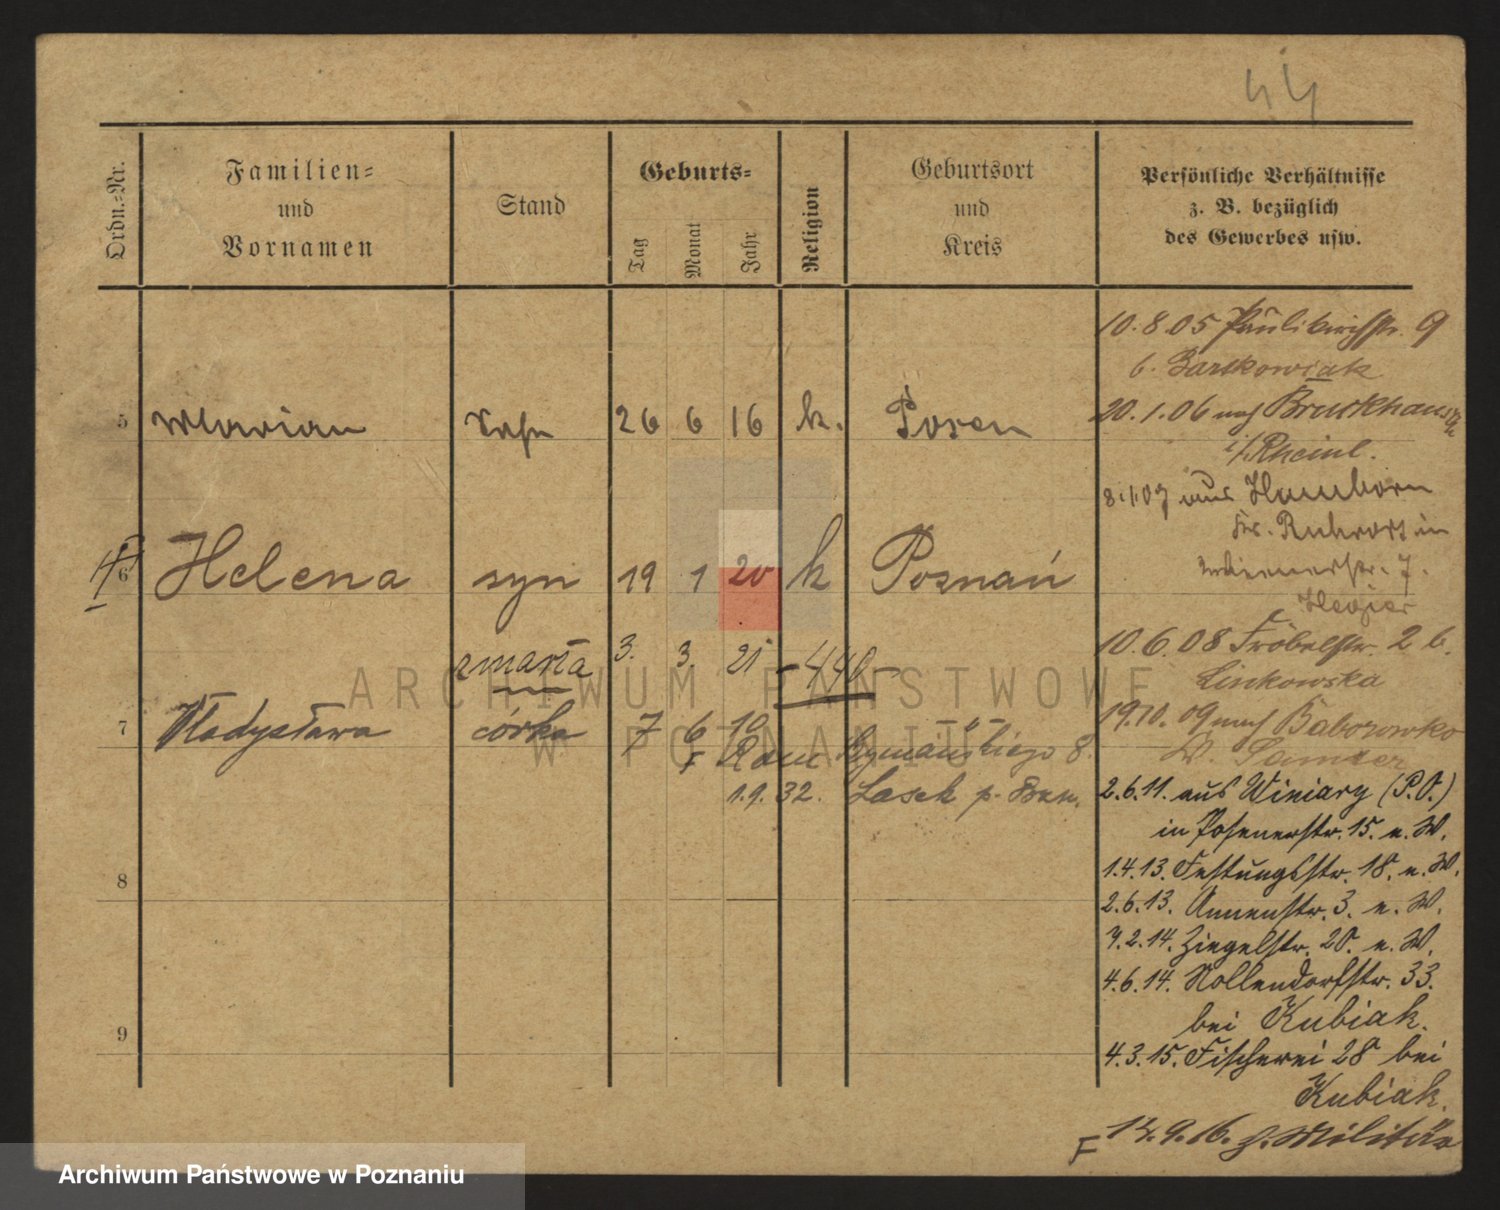 44
Ordn.-Nr.
Familien-
und
Vornamen
Stand
Geburts-
Tag
Monat
Jahr
Religion
Geburtsort
und
Kreis
Persönliche Verhältnisse
z. B. bezüglich
des Gewerbes usw.
5 Marian Sohn 26 6 16 k. Posen
6 Helena syn 19 1 20 k Poznań
zmarła 3. 3. 21
7 Władysława córka 7 6 10
8. 
1.9.32. Lasek p.
8
9
10.8.05 Paulikirchstr. 9
b. Bartkowiak
20.1.06 nach Bruckhausen
i/Rheinl.
aus Hamborn
Kr. Ruhrort in
7.
10.6.08 Fröbelstr. 2 b.
Linkowska
19.10.09 nach Baborowko
Samter
2.6.11. aus Winiary (P.O.)
in Posenerstr. 15. e. W.
1.4.13. Festungsstr. 18. e. W.
2.6.13. Annenstr. 3. e. W.
Ziegelstr. 20. e. W.
4.6.14. Nollendorfstr. 33.
bei Kubiak.
4.3.15. Fischerei 28 bei
Kubiak.
F 14.9.16. z. Militär
ARCHIWUM PAŃSTWOWE
W POZNANIU
Archiwum Państwowe w Poznaniu